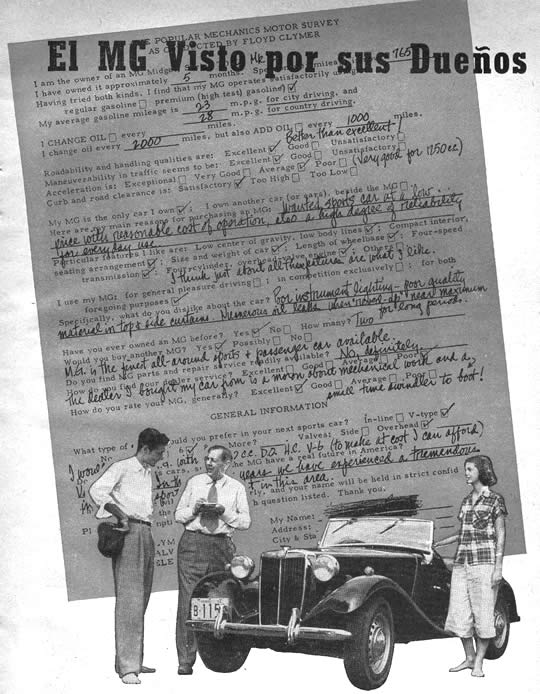 El MG Visto por sus Dueños
POPULAR MECHANICS MOTOR SURVEY
AS CONDUCTED BY FLOYD CLYMER
I am the owner of an MG Midget
I have owned it approximately 5 months.
Having tried both kinds, I find that my MG operates satisfactorily
regular gasoline premium (high test) gasoline
My average gasoline mileage is 23 m.p.g. for city driving, and
28 m.p.g. for country driving.
I CHANGE OIL every miles.
I change oil every 2000 miles, but also ADD OIL every 1000 miles.
Better than excellent!
Roadability and handling qualities are: Excellent Good Unsatisfactory
Maneuverability in traffic seems to be: Excellent Good Unsatisfactory
Acceleration is: Exceptional Very Good Average Poor (Very good for 1250 cc.)
Curb and road clearance is: Satisfactory Too High Too Low
My MG is the only car I own I own another car (or cars), beside the MG
Here are my main reasons for purchasing an MG: Wanted sports car at a low
price with reasonable cost of operation, also a high degree of reliability
for everyday use
Particular features I like are: Low center of gravity, low body lines Compact interior,
seating arrangement Size and weight of car Length of wheelbase Four-speed
transmission Four-cylinder, overhead-valve engine Others
I think just about all the features are what I like.
I use my MG: for general pleasure driving in competition exclusively for both
foregoing purposes
Specifically, what do you dislike about the car? Poor instrument lighting - poor quality
material in top & side curtains. Numerous oil leaks when "revved-up" near maximum
for long periods.
Have you ever owned an MG before? Yes No How many? Two
Would you buy another MG? Yes Possibly No
MG. is the finest all-around sports & passenger car available.
Do you find MG parts and repair service readily available? No, definitely
How do you find your dealer service? Excellent Good Average Poor
The dealer I bought my car from is a moron about mechanical work and a
small time swindler to boot!
How do you rate your MG, generally? Excellent Good Average Poor
GENERAL INFORMATION
What type of would you prefer in your next sports car? In-line V-type
6 More? Valves: Side Overhead
V-6 (to make at cost I can afford)
the MG have a real future in America?
years we have experienced a tremendous
in this area.
and your name will be held in strict
question listed. Thank you.
My Name:
Address:
City &
B-115